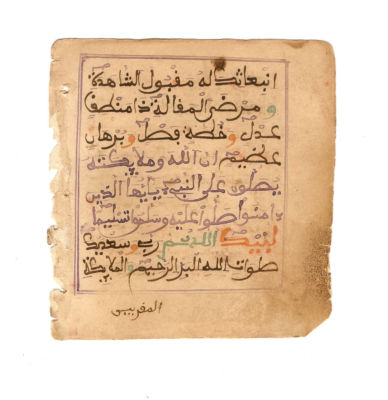 ابتعاثك له مقبول الشهادة
و مرضي المقالة ذا منطق
عدل و خطة فصل و برهان
عظيم ان الله وملايكته
يصلون على النبي يايها الذين
ءامنوا صلوا عليه وسلموا تسليما
لبيك اللهم ربي وسعديك
صلوات الله البر الرحيم والملايكة
المقربين